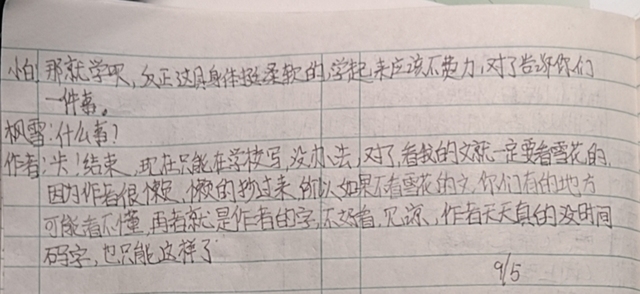 小白:那就学呗,反正这具身体挺柔软的,学起来应该不费力,对了告诉你们
一件事。
枫雪:什么事?
作者:卡!结束,现在只能在学校写,没办法,对了,看我的文就一定要看雪花的,
因为作者很懒,懒的抄过来,所以如果不看雪花的文,你们有的地方
可能看不懂,再者就是作者的字,不好看,见谅,作者天天真的没时间
码字,也只能这样了
9/5